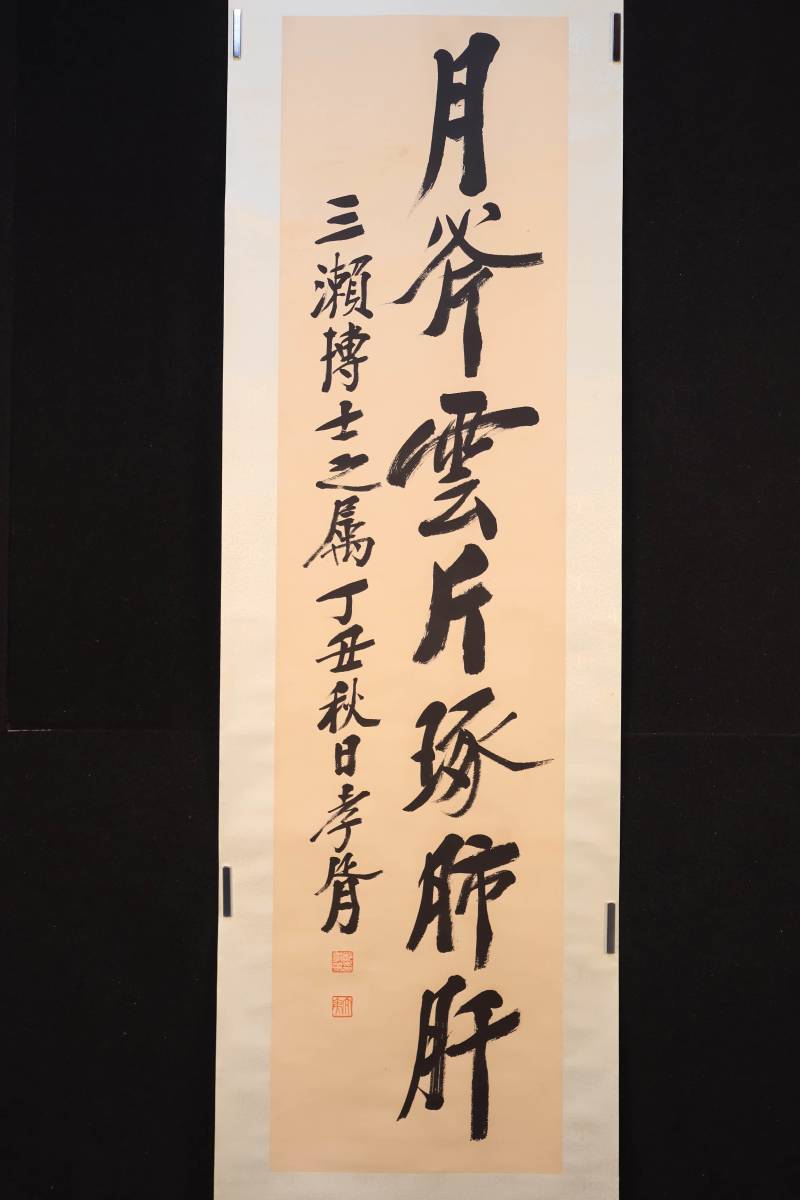 月斧雲片琢肺肝
三瀬博士之属丁丑秋日孝胥